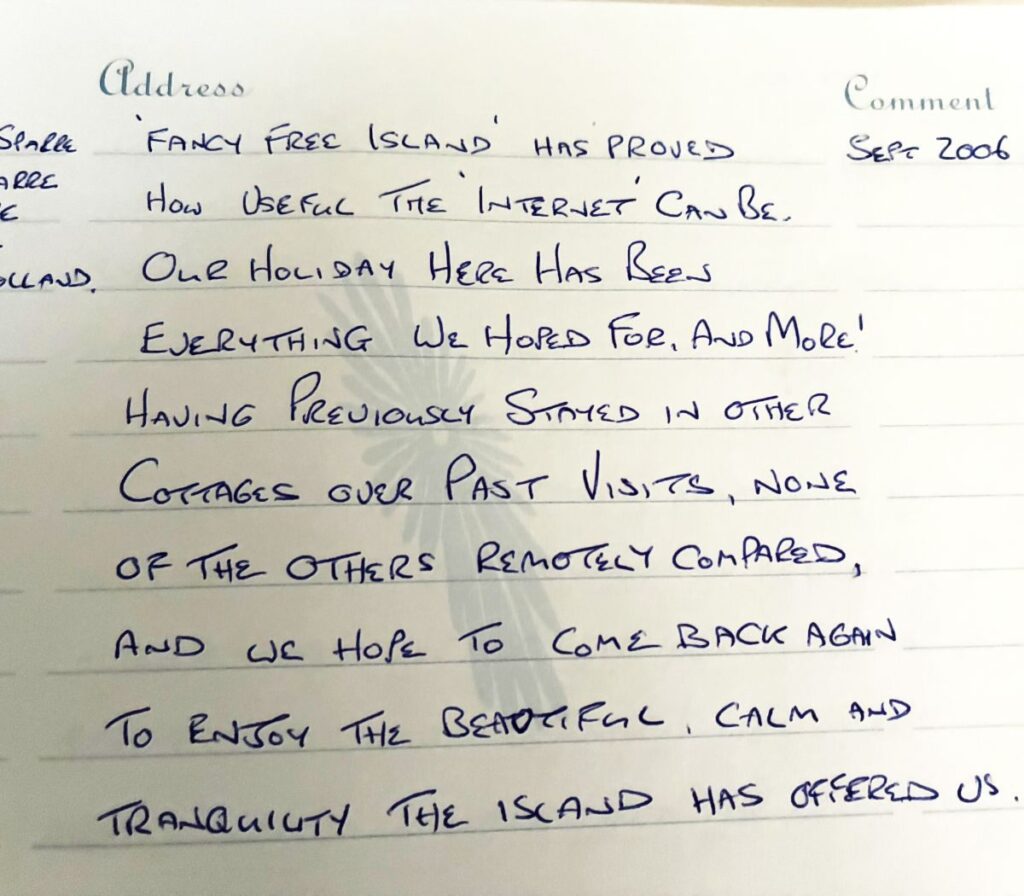 Address Comment
SPARRE 'FANCY FREE ISLAND' HAS PROVED SEPT 2006
ARRE HOW USEFUL THE 'INTERNET' CAN BE.
OLLAND. OUR HOLIDAY HERE HAS BEEN
EVERYTHING WE HOPED FOR, AND MORE!
HAVING PREVIOUSLY STAYED IN OTHER
COTTAGES OVER PAST VISITS, NONE
OF THE OTHERS REMOTELY COMPARED,
AND WE HOPE TO COME BACK AGAIN
TO ENJOY THE BEAUTIFUL, CALM AND
TRANQUILITY THE ISLAND HAS OFFERED US.